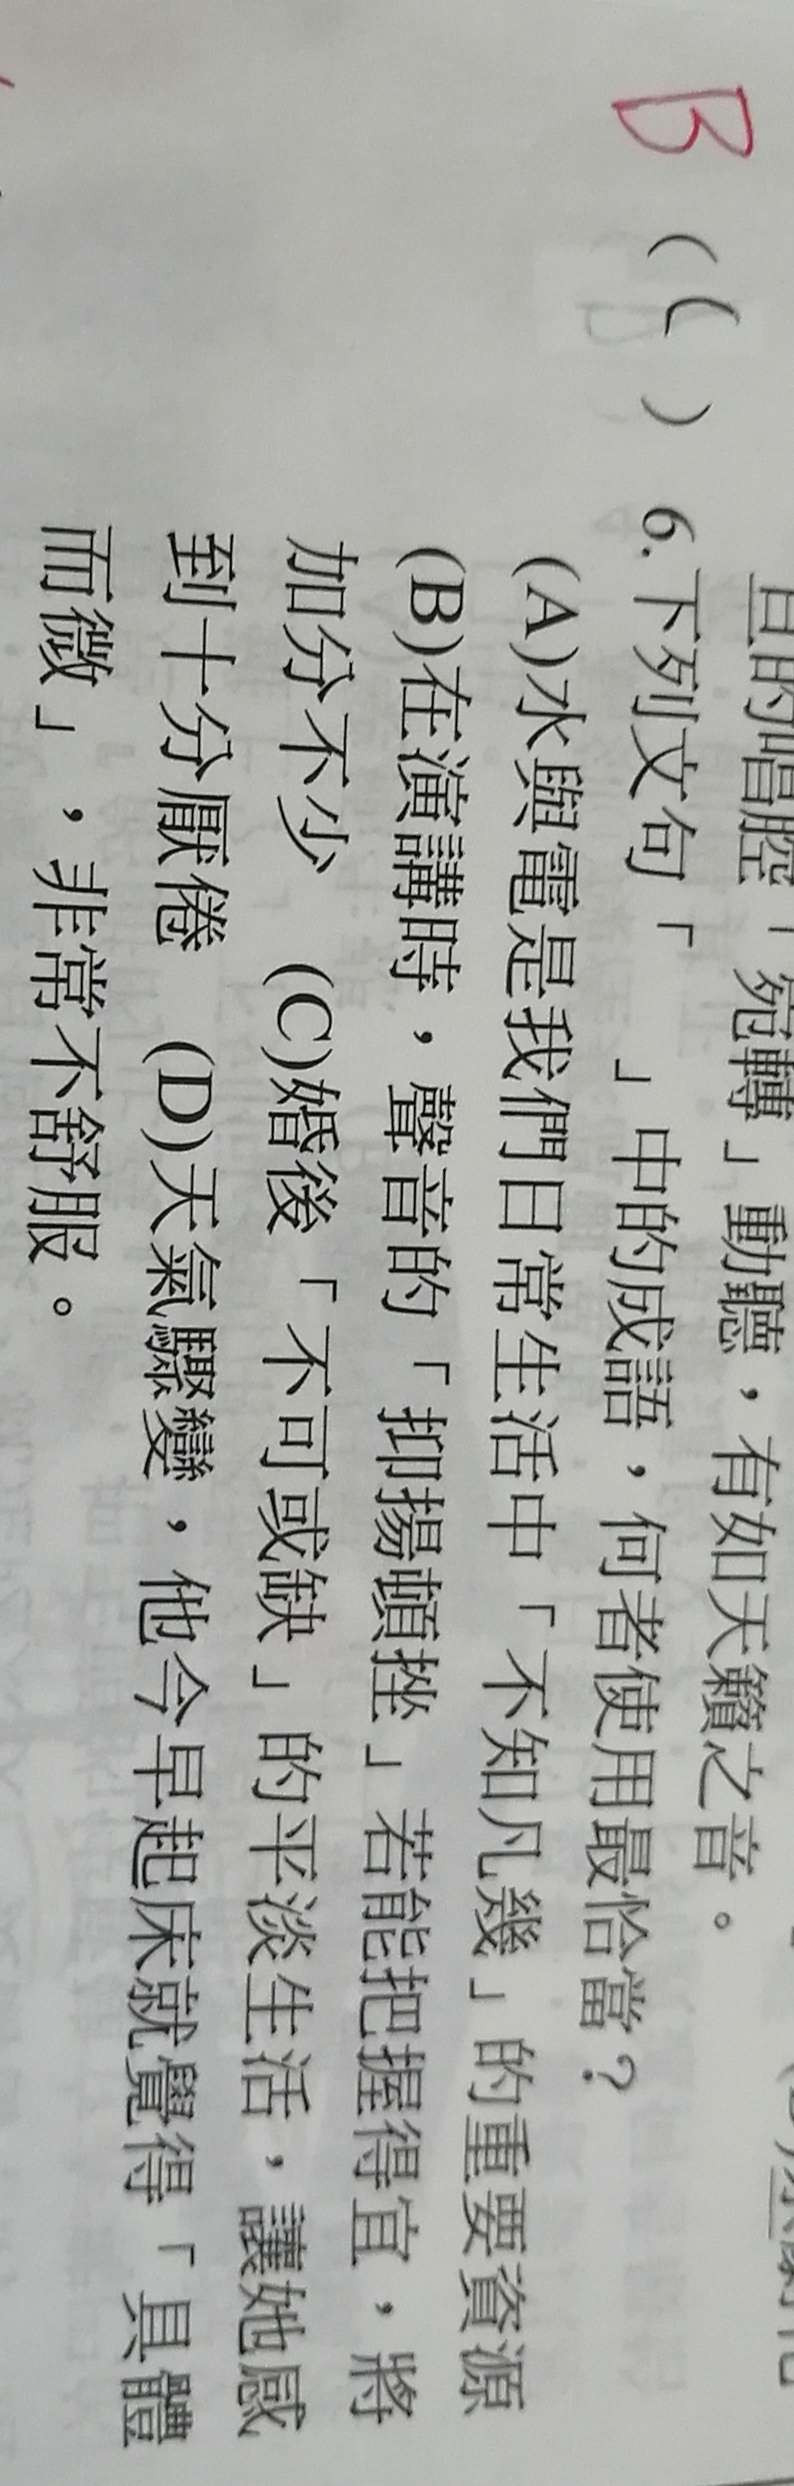 旦的唱腔「宛轉」動聽，有如天籟之音。
B ( ( ) 6.下列文句「 」中的成語，何者使用最恰當？
(A)水與電是我們日常生活中「不知凡幾」的重要資源
(B)在演講時，聲音的「抑揚頓挫」若能把握得宜，將
加分不少 (C)婚後「不可或缺」的平淡生活，讓她感
到十分厭倦 (D)天氣驟變，他今早起床就覺得「具體
而微」，非常不舒服。